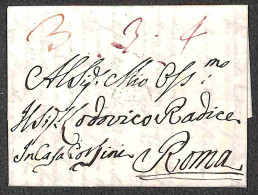 3. 3. 4
Al Sig. Mio Oss.mo
Il Sig. Lodovico Radice
In Casa Corsini Roma